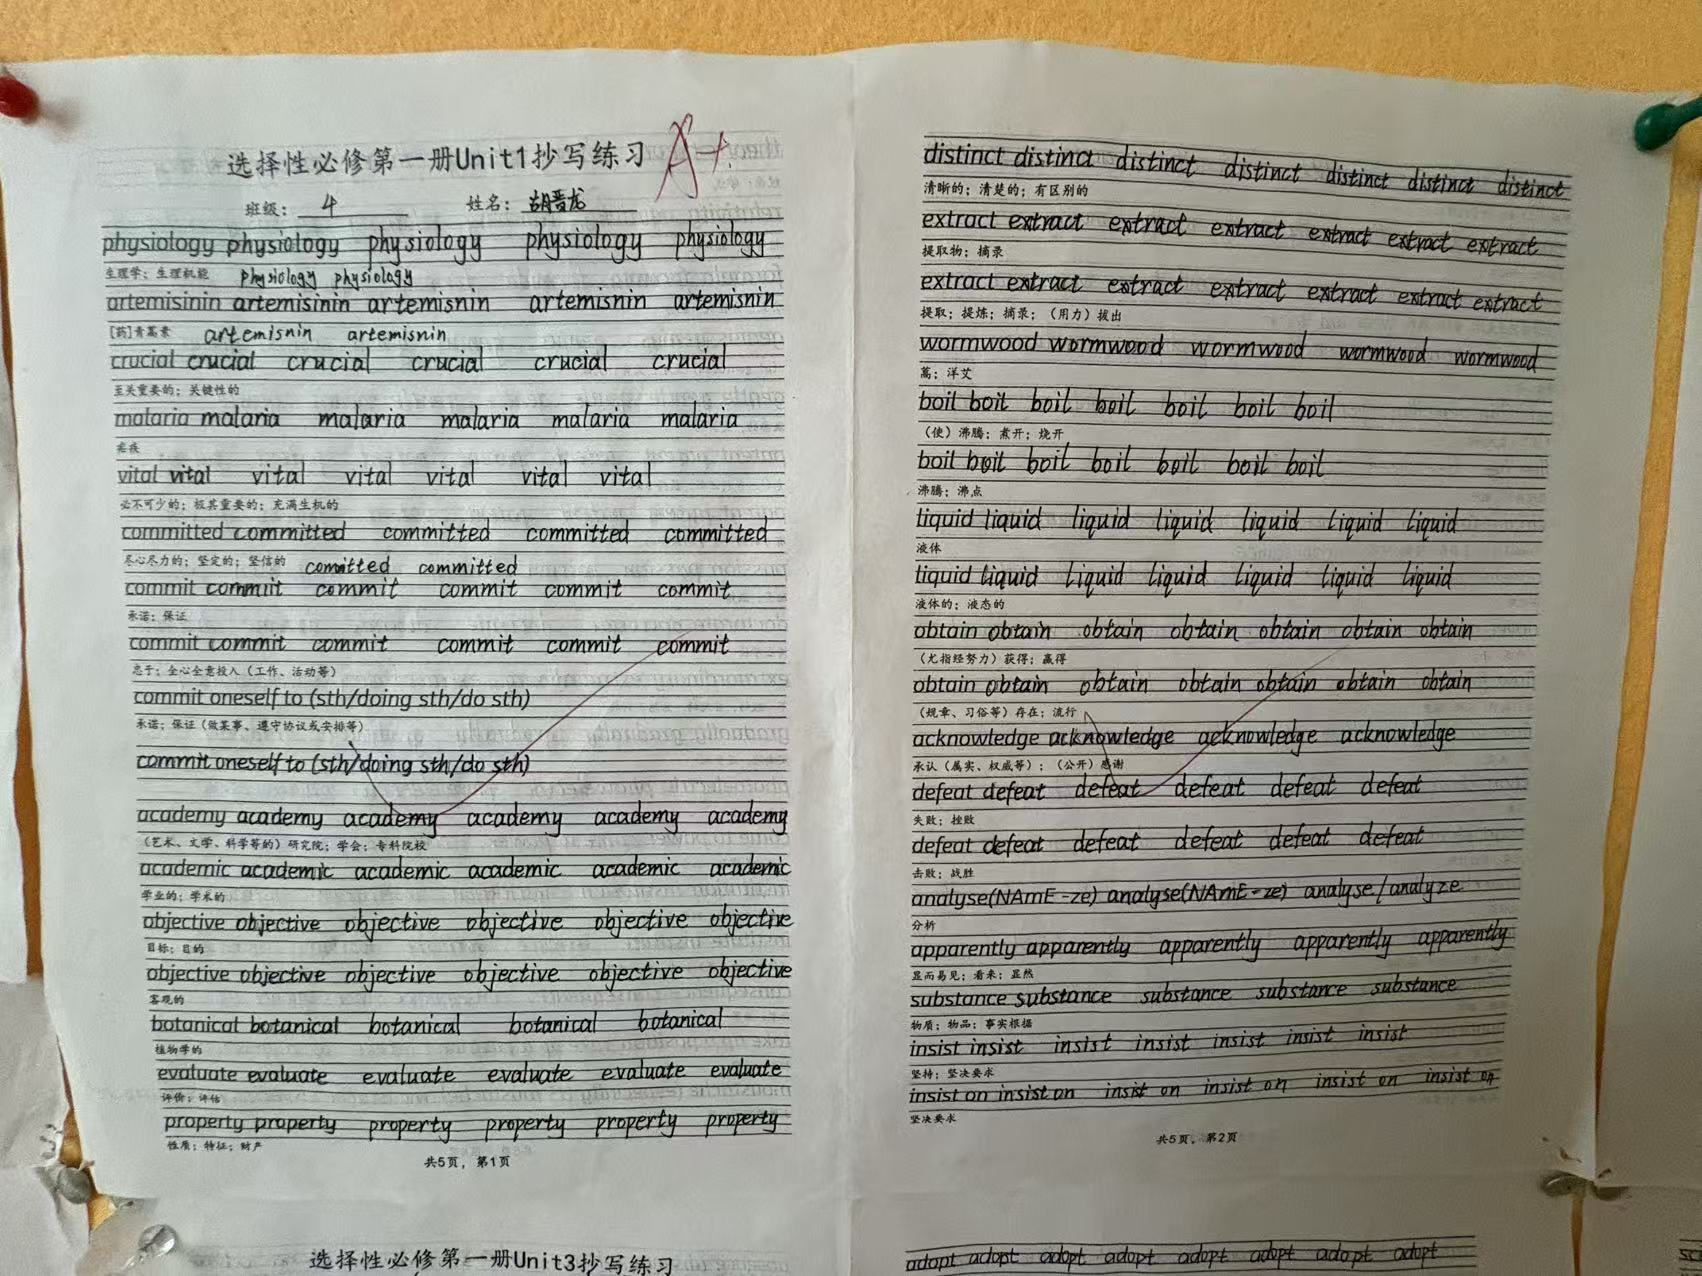 选择性必修第一册Unit1抄写练习 A+
班级: 4 姓名: 胡晋龙
physiology physiology physiology physiology physiology
生理学；生理机能 physiology physiology
artemisinin artemisinin artemisnin artemisnin artemisnin
[药]青蒿素 artemisnin artemisnin
crucial crucial crucial crucial crucial crucial
至关重要的；关键性的
malaria malaria malaria malaria malaria malaria
疟疾
vital vital vital vital vital vital vital
必不可少的；极其重要的；充满生机的
committed committed committed committed committed
尽心尽力的；坚定的；坚信的 committed committed
commit commit commit commit commit commit
承诺；保证
commit commit commit commit commit commit
忠于；全心全意投入（工作、活动等）
commit oneself to (sth/doing sth/do sth)
承诺；保证（做某事、遵守协议或安排等）
commit oneself to (sth/doing sth/do sth)
academy academy academy academy academy academy
（艺术、文学、科学等的）研究院；学会；专科院校
academic academic academic academic academic academic
学业的；学术的
objective objective objective objective objective objective
目标；目的
objective objective objective objective objective objective
客观的
botanical botanical botanical botanical botanical
植物学的
evaluate evaluate evaluate evaluate evaluate evaluate
评价；评估
property property property property property property
性质；特征；财产
共5页，第1页
distinct distinct distinct distinct distinct distinct distinct
清晰的；清楚的；有区别的
extract extract extract extract extract extract extract
提取物；摘录
extract extract extract extract extract extract extract
提取；提炼；摘录；（用力）拔出
wormwood wormwood wormwood wormwood wormwood
蒿；洋艾
boil boil boil boil boil boil boil
（使）沸腾；煮开；烧开
boil boil boil boil boil boil boil
沸腾；沸点
liquid liquid liquid liquid liquid liquid liquid
液体
liquid liquid liquid liquid liquid liquid liquid
液体的；液态的
obtain obtain obtain obtain obtain obtain obtain
（尤指经努力）获得；赢得
obtain obtain obtain obtain obtain obtain obtain
（规章、习俗等）存在；流行
acknowledge acknowledge acknowledge acknowledge
承认（属实、权威等）；（公开）感谢
defeat defeat defeat defeat defeat defeat
失败；挫败
defeat defeat defeat defeat defeat defeat
击败；战胜
analyse(NAmE -ze) analyse(NAmE -ze) analyse/analyze
分析
apparently apparently apparently apparently apparently
显而易见；看来；显然
substance substance substance substance substance
物质；物品；事实根据
insist insist insist insist insist insist insist
坚持；坚决要求
insist on insist on insist on insist on insist on insist on
坚决要求
共5页，第2页
选择性必修第一册Unit3抄写练习
adopt adopt adopt adopt adopt adopt adopt adopt